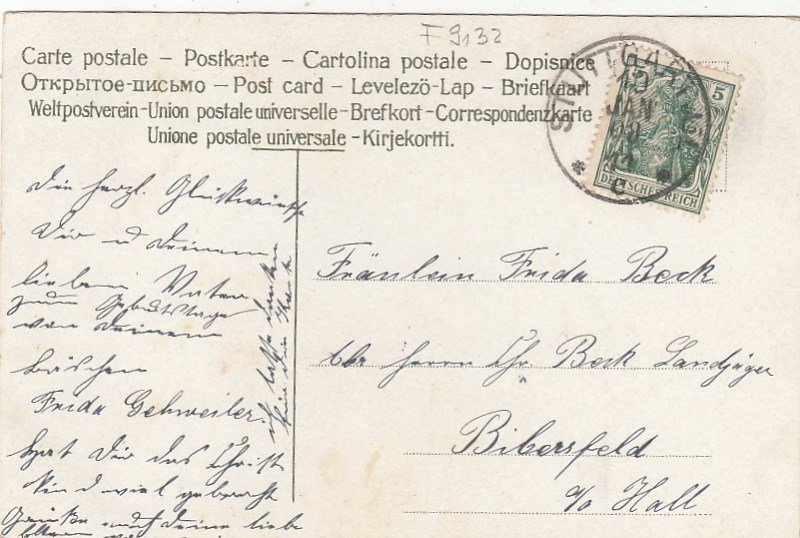 F 9132
Carte postale – Postkarte – Cartolina postale – Dopisnice
Открытое-письмо – Post card – Levelezö-Lap – Briefkaart
Weltpostverein-Union postale universelle-Brefkort-Correspondenzkarte
Unione postale universale-Kirjekortti.
STUTTGART
JAN
C
5
DEUTSCHES REICH
Die herzl. Glückwünsche
Dir u Deinem
lieben Vater
zum Geburtstage
von Deinem
Bäschen
Frida Gehweiler.
Hat Dir das Christ
kind viel gebracht
Grüße auch Deine liebe
Eltern
Fräulein Frida Beck
bei Herrn Chr Beck Landjäger
Bibersfeld
o/o Hall